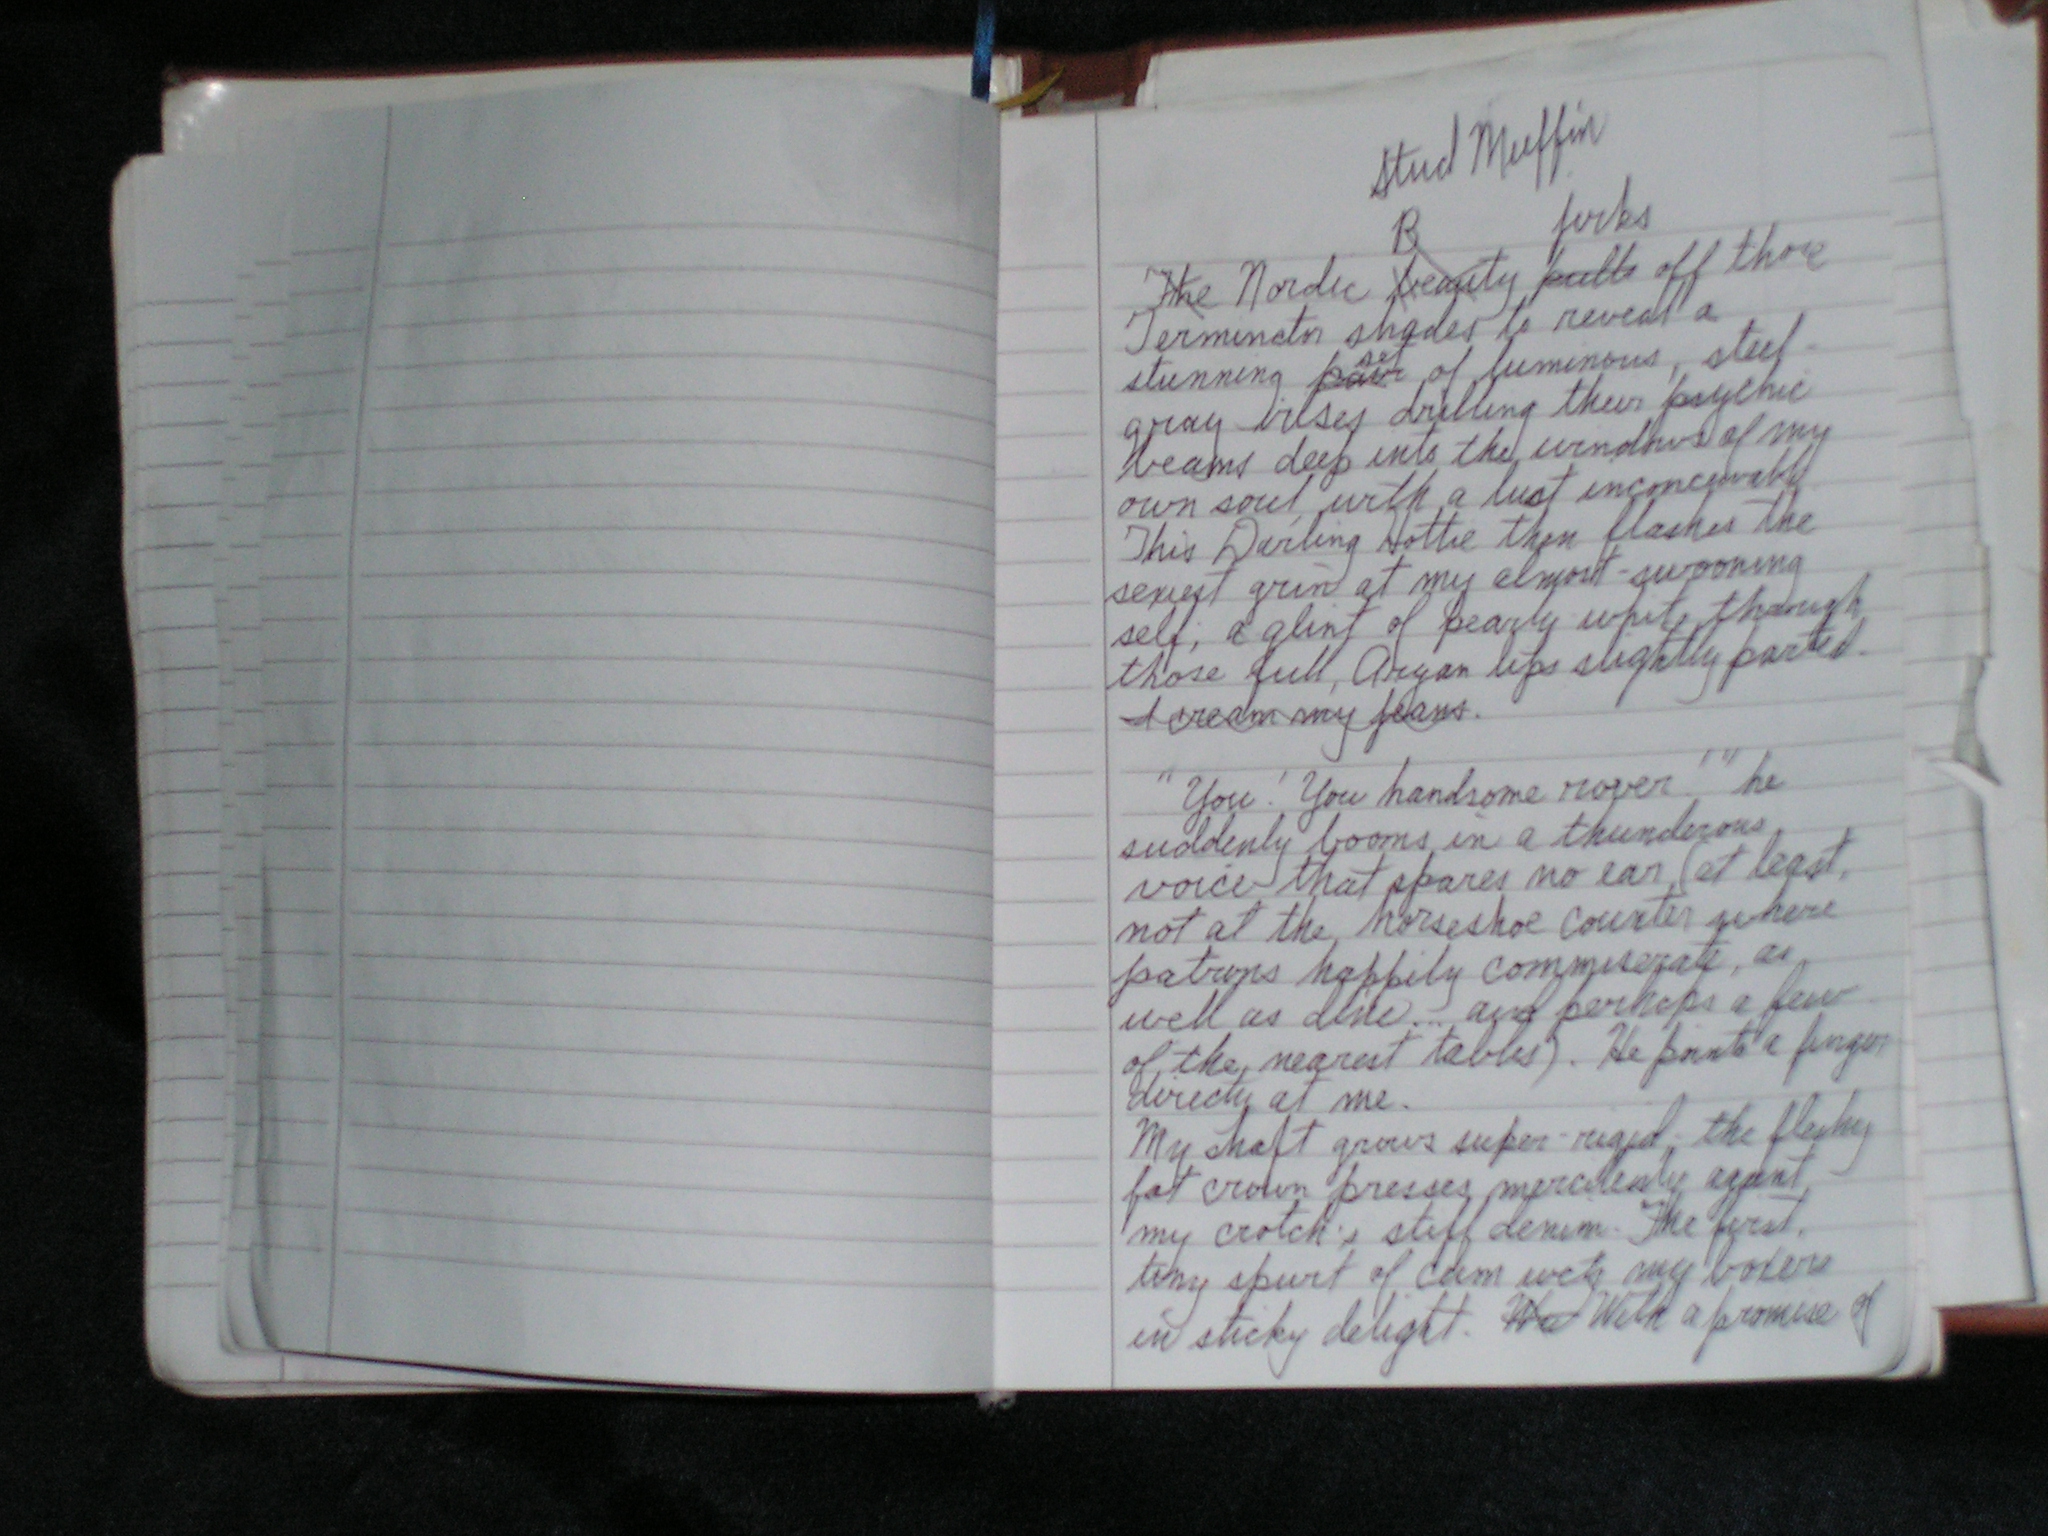 Stud Muffin
B jerks
The Nordic beauty pulls off those
Terminator shades to reveal a
set
stunning pair of luminous, steel-
gray irises drilling their psychic
beams deep into the windows of my
own soul, with a lust inconceivable
This Darling Hottie then flashes the
sexiest grin at my almost-swooning
self, a glint of pearly white through
those full, Aryan lips slightly parted.
I cream my jeans.
"You! You handsome rover!" he
suddenly booms in a thunderous
voice that spares no ear (at least,
not at the horseshoe counter where
patrons happily commiserate, as
well as dine... and perhaps a few
of the nearest tables). He points a finger
directly at me.
My shaft grows super-rigid; the fleshy
fat crown presses mercilessly against
my crotch's stiff denim. The first,
tiny spurt of cum wets my boxers
in sticky delight. With a promise of